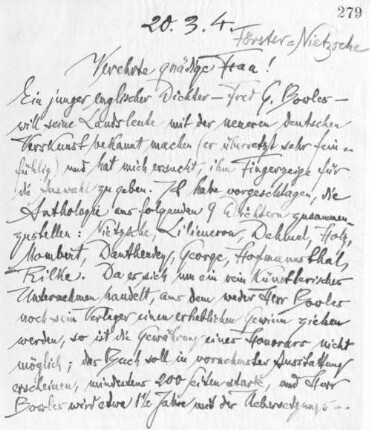 279
20.3.4.
Förster=Nietzsche
Verehrte gnädige Frau!
Ein junger englischer Dichter — Fred G. Bowles —
will seine Landsleute mit der neueren deutschen
Verskunst bekannt machen (er übersetzt sehr fein=
fühlig) und hat mich ersucht, ihm Fingerzeige für
die Auswahl zu geben. Ich habe vorgeschlagen, die
Anthologie aus folgenden 9 Dichtern zusammen=
zustellen: Nietzsche, Liliencron, Dehmel, Holz,
Mombert, Dauthendey, George, Hofmannsthal,
Rilke. Da es sich um ein rein künstlerisches
Unternehmen handelt, aus dem weder Herr Bowles
noch sein Verleger einen erheblichen Gewinn ziehen
werden, so ist die Gewährung eines Honorars nicht
möglich; das Buch soll in vornehmster Ausstattung
erscheinen, mindestens 200 Seiten stark, und Herr
Bowles wird etwa 1½ Jahre mit der Uebersetzungs=